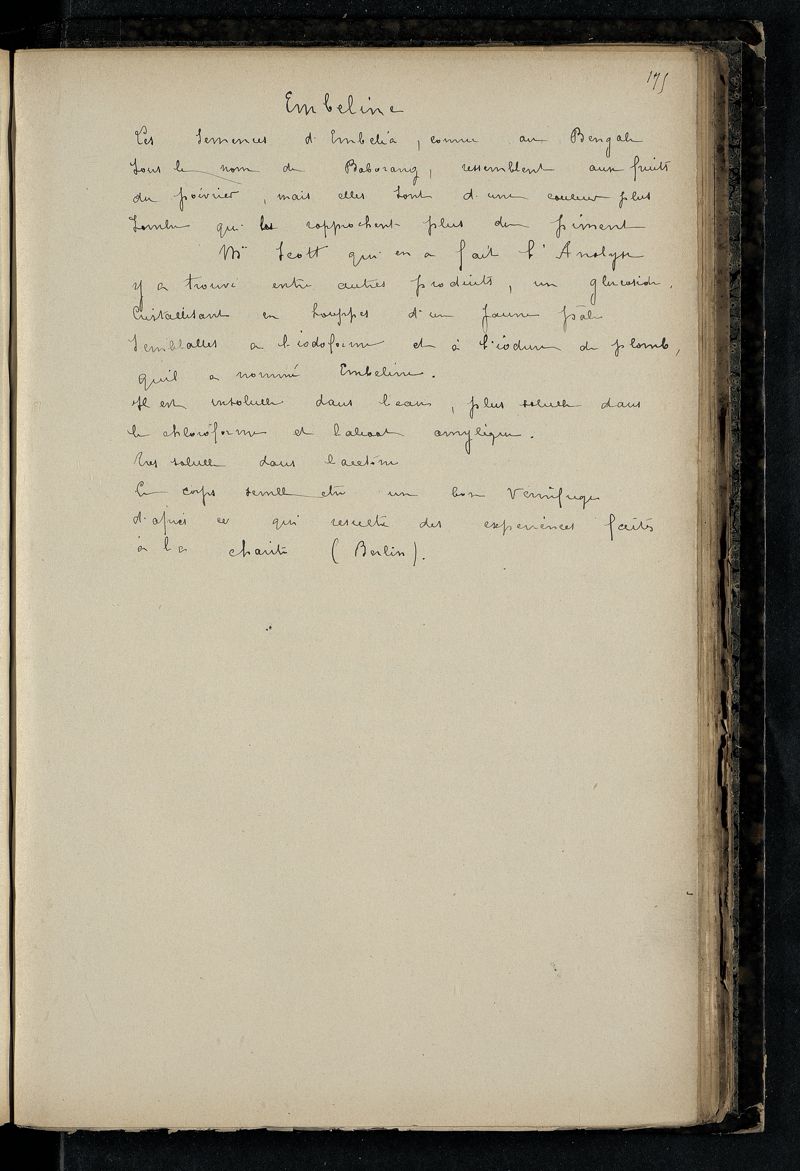 175
Embeline
Les Semences d'Embelia, connu au Bengale
Sous le nom de Baborang, ressemblent aux fruits
du poivrier, mais elles sont d'une couleur plus
Sombre qui les rapprochent plus du piment
Mr Scott qui en a fait l'Analyse
y a trouvé entre autres produits, un glucoside,
Cristallisant en houppes d'un Jaune pâle
Semblables a l'iodoforme et à l'iodure de plomb,
qu'il a nommé Embeline.
Il est insoluble dans l'eau, plus soluble dans
le chloroforme et l'alcool amylique.
très soluble dans l'acetone
Ce corps semble etre un bon Vermifuge
d'après ce qui resulte des experiences faites
à la charité (Berlin).